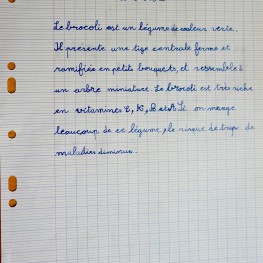 Le brocoli est un légume de couleur verte.
Il présente une tige centrale ferme et
ramifiée en petits bouquets, et ressemble à
un arbre miniature. Le brocoli est très riche
en vitamines C, K, B et A. Si on mange
beaucoup de ce légume, le risque de trop de
maladies diminue.